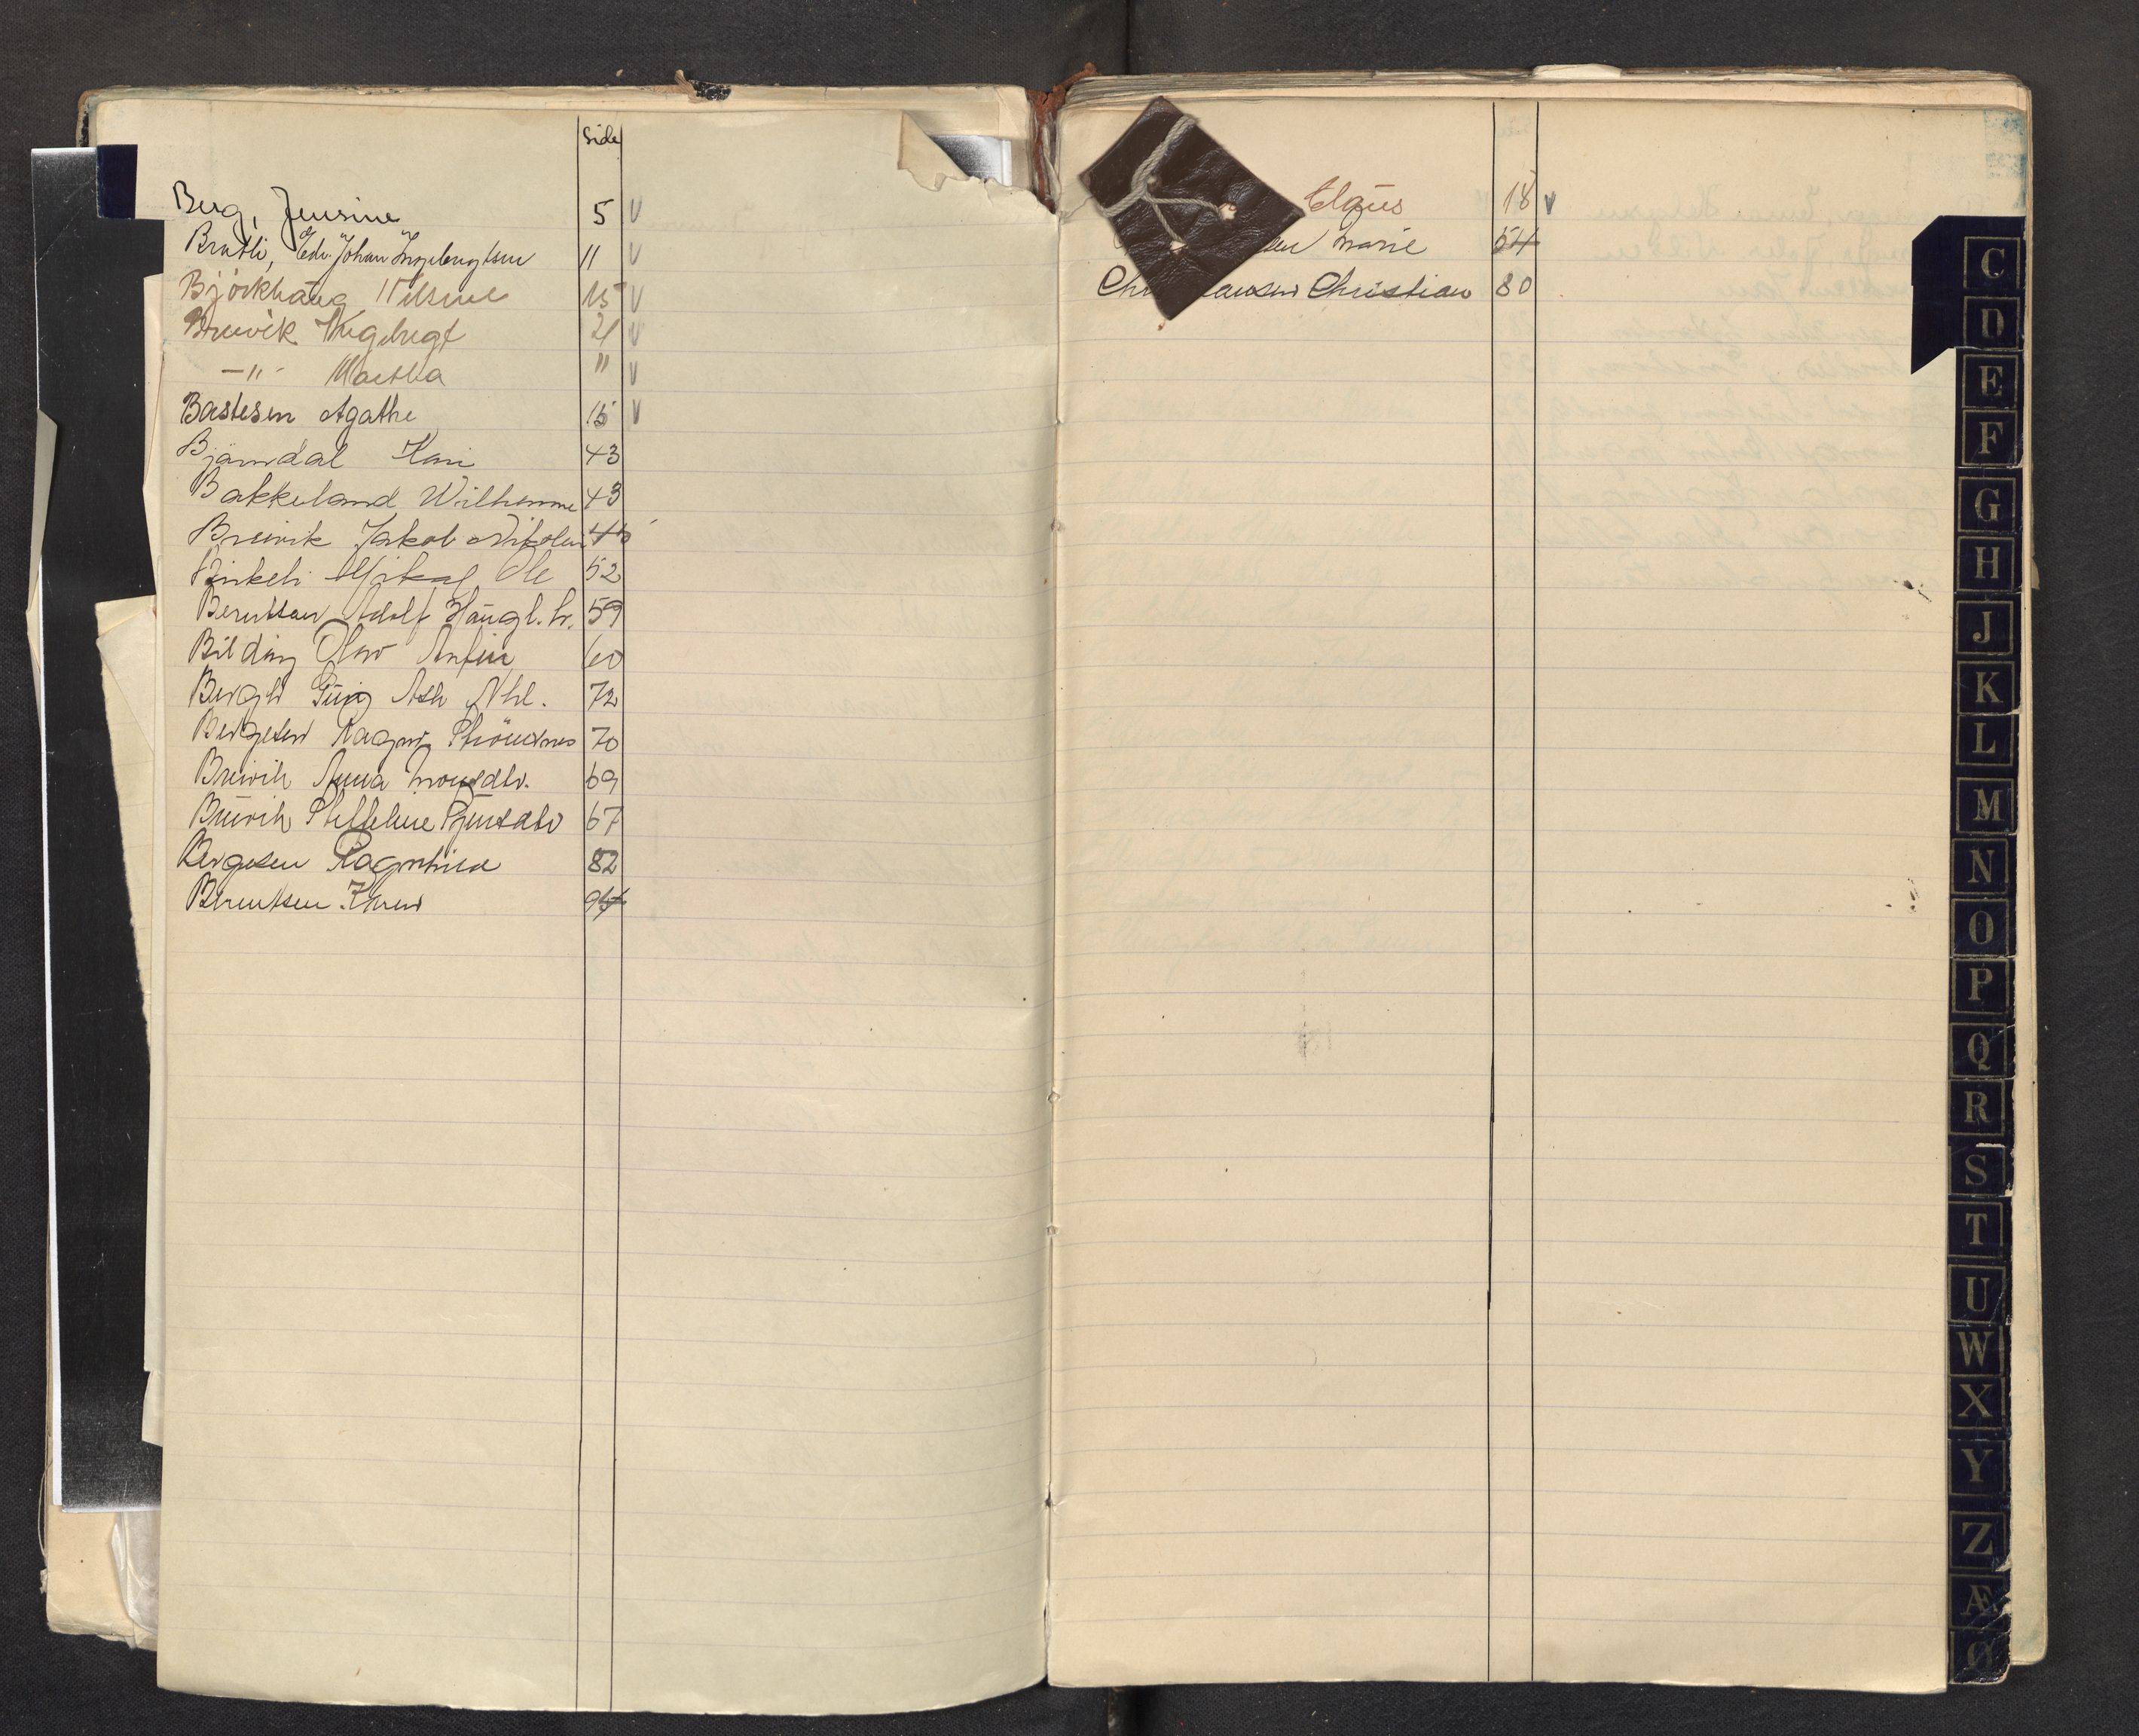 side
Berg, Jensine 5 V
Bratli, Edv. Johan Ingebrigtsen 11 V
Björkhaug Nilsine 15 V
Breivik Ingebrigt 21 V
—"— Martha " V
Bastesen Agathe 15 V
Bjørndal Kari 43
Bakkeland Wilhemine 43
Breivik Jakob Nikolai 45
Birkeli Mikal Ole 52
Berntsen Adolf Haugl. br. 59
Bilding Olav Anfin 60
Bergh 72
Bergesen Ragnv. 70
Breivik Anna Monsdtr. 69
Breivik Steffeline 67
Bergesen Ragnhild 82
Berentsen Karen 94
Claus 18 V
Marie 54
Chr ansen Christian 80
C
D
E
F
G
H
J
K
L
M
N
O
P
Q
R
S
T
U
W
X
Y
Z
Æ
Ø